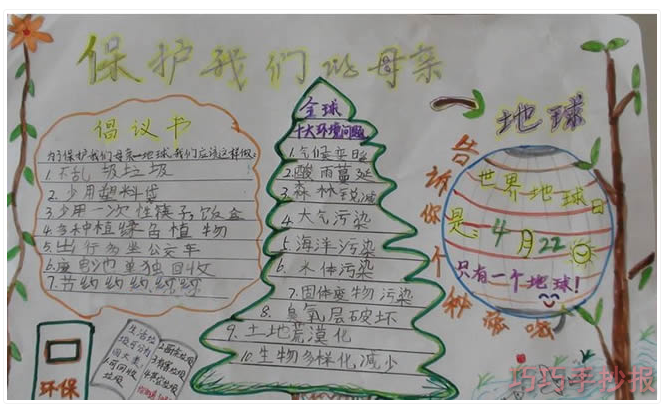 保护我们的母亲
地球
倡议书
为了保护我们母亲—地球,我们应该这样做:
1.不乱圾垃圾!
2.少用塑料袋
3.少用一次性筷子、饭盒
4.多种植绿色植物
5.出行多坐公交车
6.废电池单独回收
全球
十大环境问题
1.气候变日
2.酸雨蔓延
3.森林锐减
4.大气污染
5.海洋污染
6.水体污染
7.固体废物污染
8.臭氧层破坏
9.土地荒漠化
10.生物多样化减少
告诉你个
世界地球日
是:4月22
只有一个地球!
环保
生活垃
圾可分为
四大类
1.可回收
垃圾
巧巧手抄报